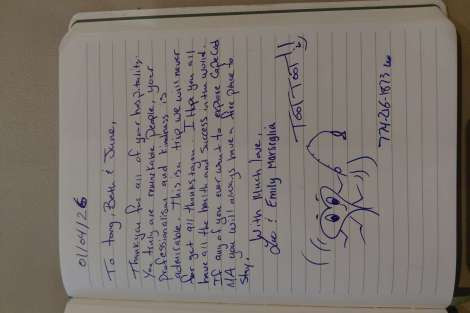 01/04/26
To tony, Beth & June,
Thank you for all of your hospitality.
You truly are remarkable people, your
professionalism and kindness is
admirable. This is a trip we will never
forget all thanks to you. I hope you all
have all the health and success in the world.
If any of you ever want to explore Cape Cod
MA you will always have a free place to
stay.
With Much love,
& Emily Marseglia
TOOT TOOT!!